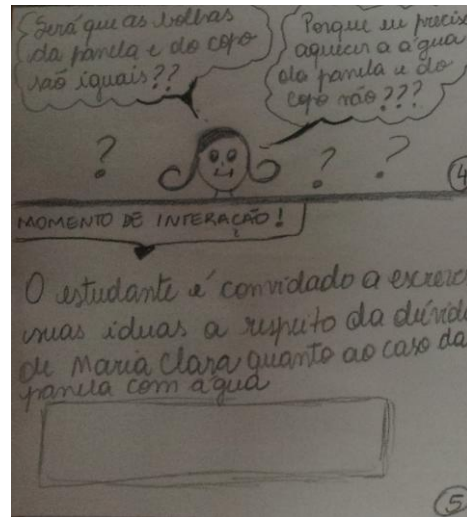 Será que as bolhas
da panela e do copo
são iguais??
Porque eu precis
aquecer a água
da panela e do
copo não???
?
?
?
4
MOMENTO DE INTERAÇÃO!
O estudante é convidado a escrev
suas ideias a respeito da dúvid
de Maria Clara quanto ao caso da
panela com água
5